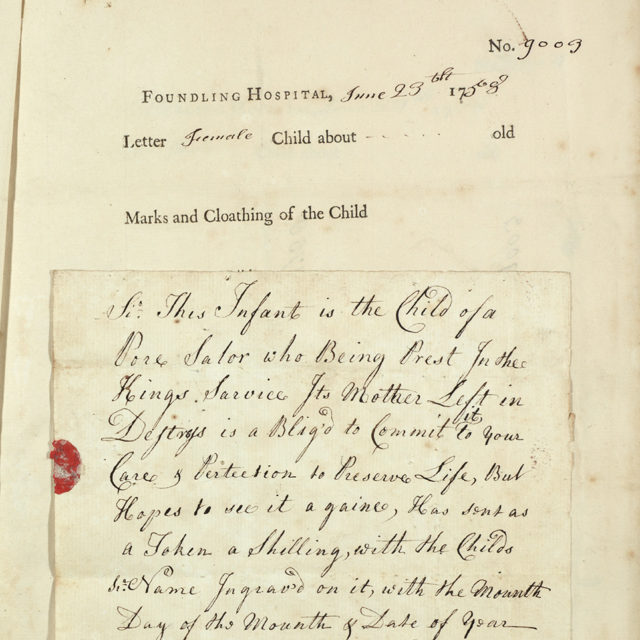 No. 9009
FOUNDLING HOSPITAL, June 23tht 1758
Letter Female Child about - - - - - - old
Marks and Cloathing of the Child
Sir. This Infant is the Child of a
Pore Salor who Being Prest In the
Kings Sarvice Its Mother Left in
Destrys is a Blig'd to Commit it to Your
Care & Pertection to Preserve Life, But
Hopes to see it a gaine, Has sent as
a Token a Shilling, with the Childs
Sir. Name Ingrav'd on it, with the Mounth
Day of the Mounth & Date of Year